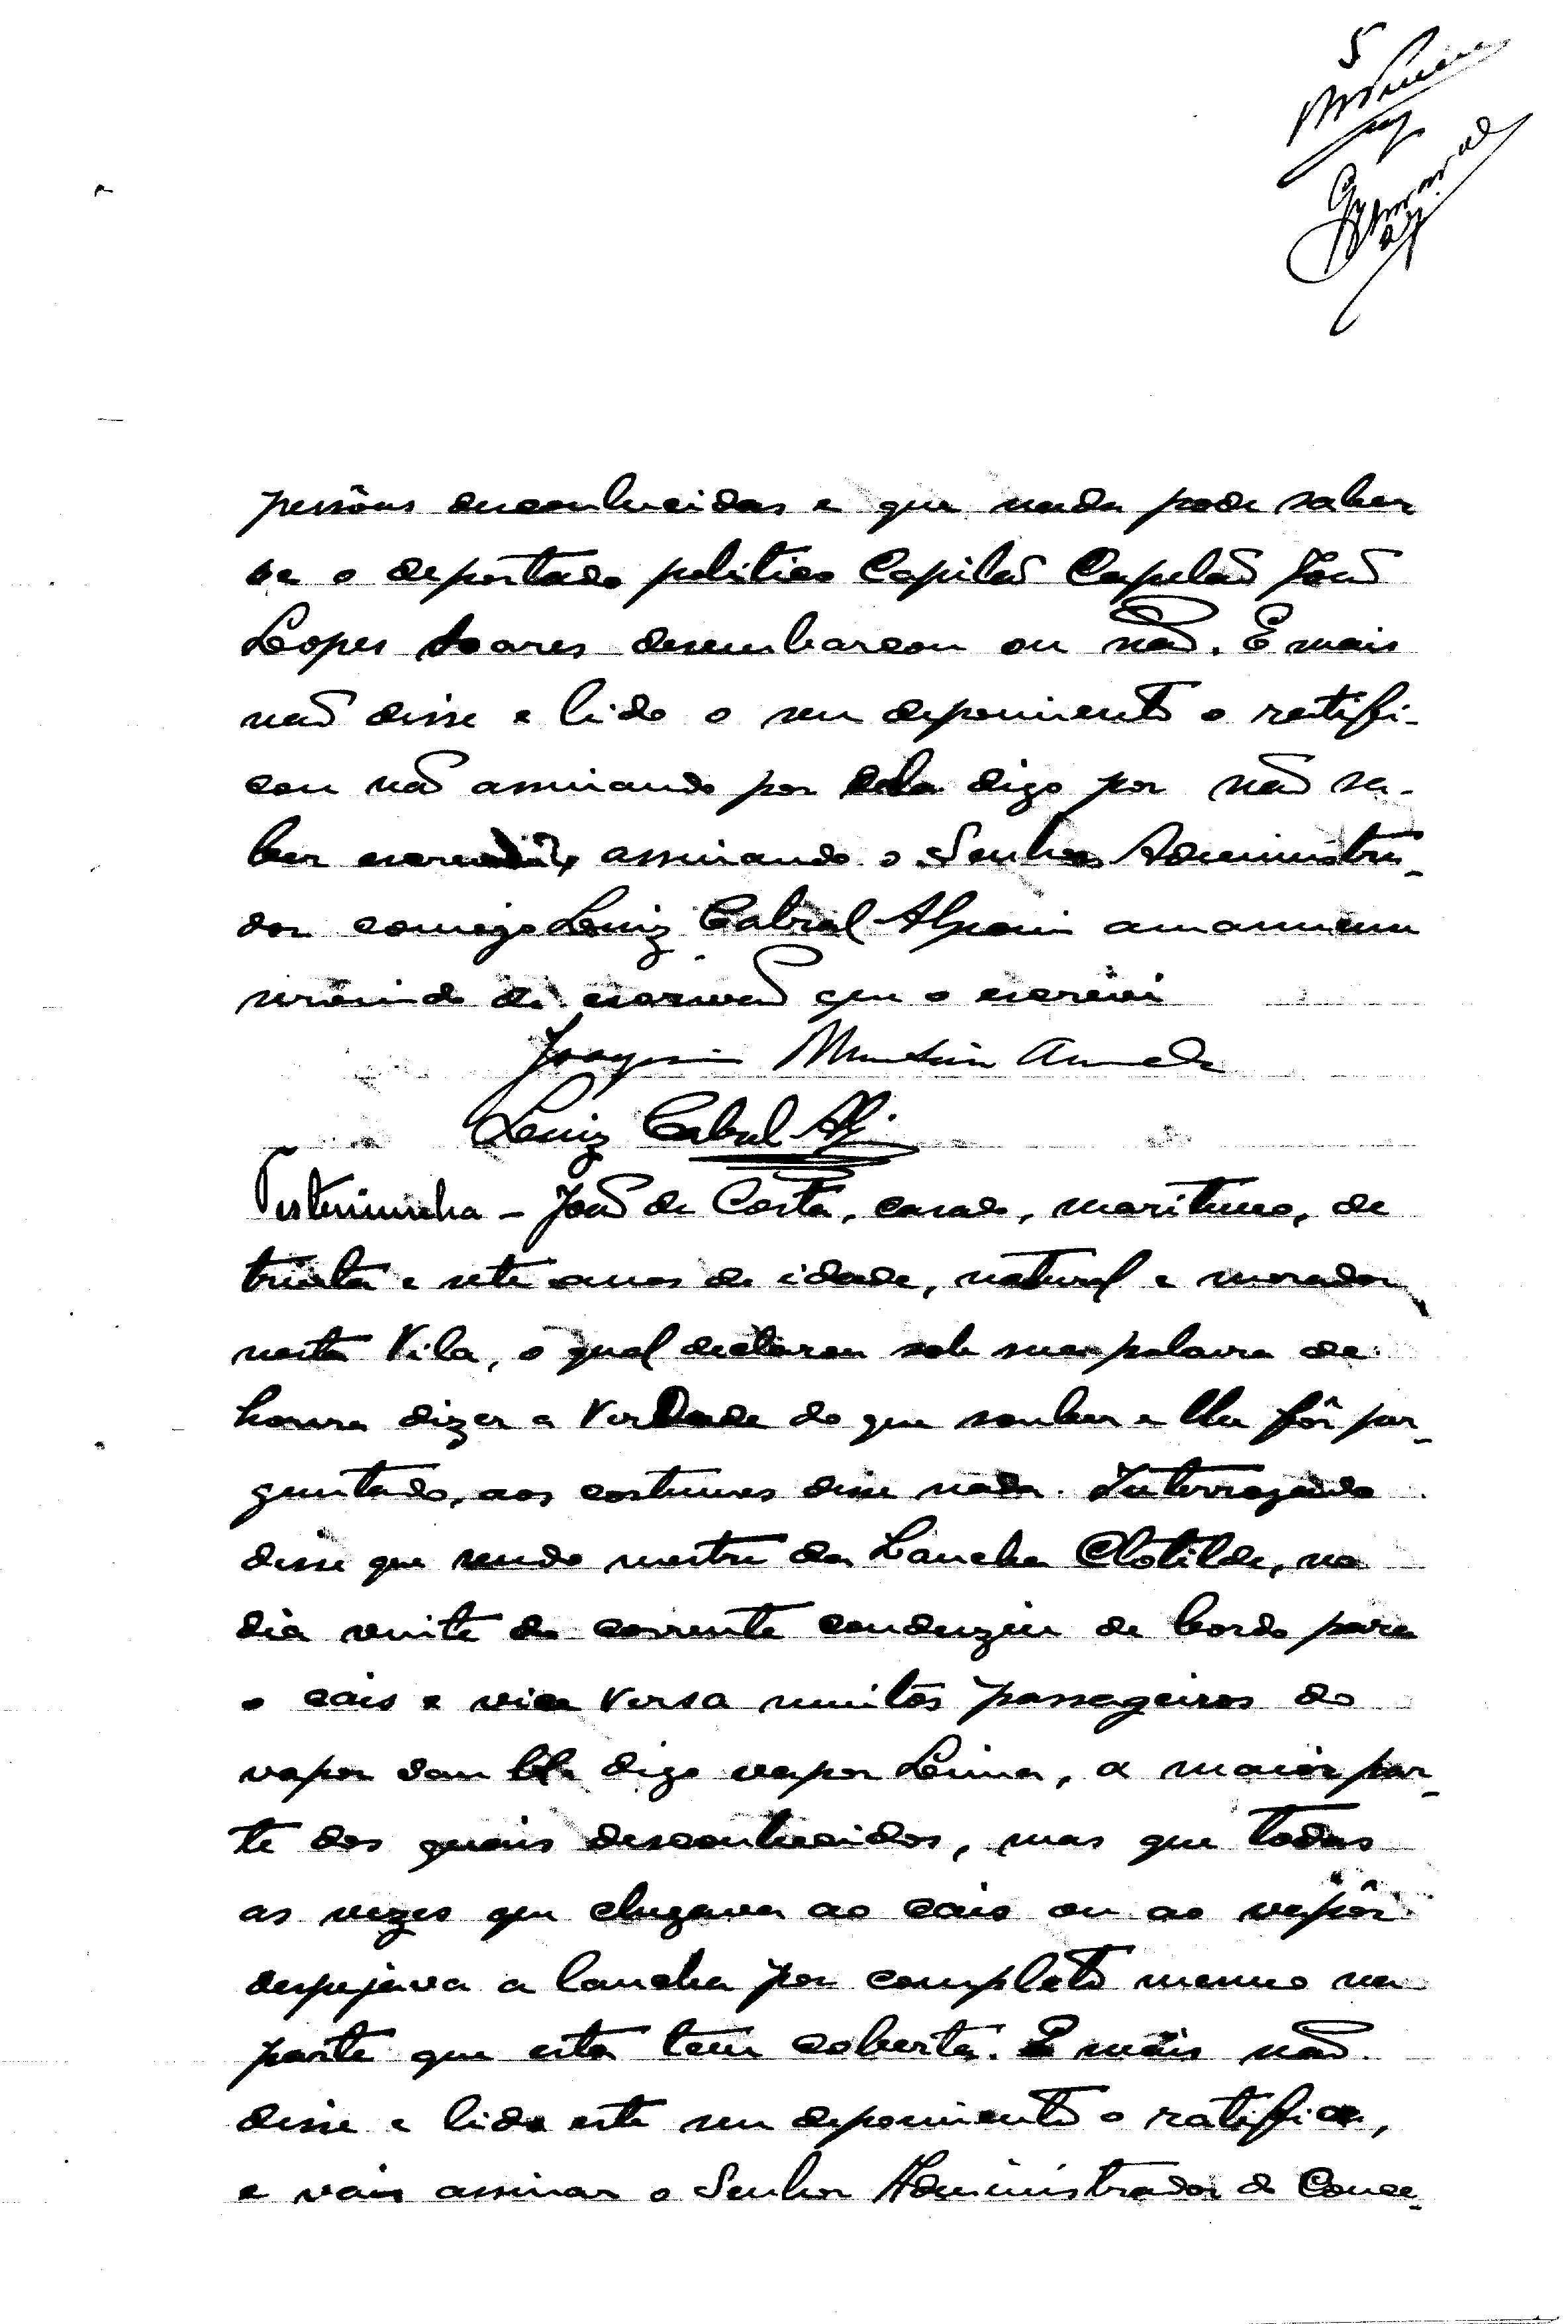 5
pessôas desconhecidas e que nada pode saber
se o deportado politico Capitão Capelão João
Lopes Soares desembarcou ou não. E mais
não disse e lido o seu depoimento o ratifi-
cou não assinando por digo por não sa-
ber escrever, assinando o Senhor Administra-
dor comigo Luiz Cabral Alpoim amanuense
servindo de escrivão que o escrevi
Joaquim Almeida
Luiz Cabral Al.
Testemunha - João da Costa, casado, maritimo, de
trinta e sete anos de idade, natural e morador
nesta Vila, o qual declarou sob sua palavra de
honra dizer a Verdade do que souber e lhe fôr per-
guntado, aos costumes disse nada. Interrogado
disse que sendo mestre da Lancha Clotilde, no
dia vinte do corrente conduziu de bordo para
o cais e vice Versa muitos passageiros do
vapor digo vapor Lima, a maior par-
te dos quais desconhecidos, mas que todas
as vezes que chegava ao cais ou ao vapôr
despejava a lancha por completo mesmo na
parte que esta tem coberta. E mais não
disse e lido este seu depoimento o ratifica,
e vais assinar o Senhor Administrador do Conce-